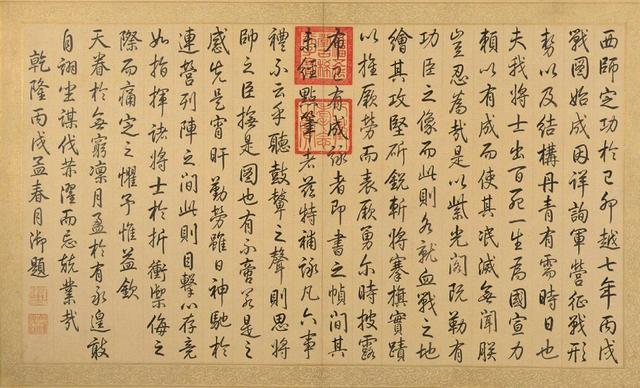 西師定功於己卯越七年丙戌
戰圖始成因詳詢軍營征戰形
勢以及結構丹青有需時日也
夫我將士出百死一生為國宣力
賴以有成而使其泯滅無聞朕
豈忍為哉是以紫光閣既勒有
功臣之像而此則各就血戰之地
繪其攻堅斫銳斬將搴旗實蹟
以推厥勞而表厥勇尔時披露
布已有成詠者即書之幀間其
未經點筆者茲特補詠凡六事
禮不云乎聽鼓鼙之聲則思將
帥之臣撫是圖也有不啻若是之
感先是宵旰勤勞雖日神馳於
連營列陣之間此則目擊以存竟
如指揮諸將士於折衝禦侮之
際而痛定之懼予惟益欽
天眷於無窮凜月盈於有永遑敢
自詡坐謀伐濯而忘兢業哉
乾隆丙戌孟春月御題